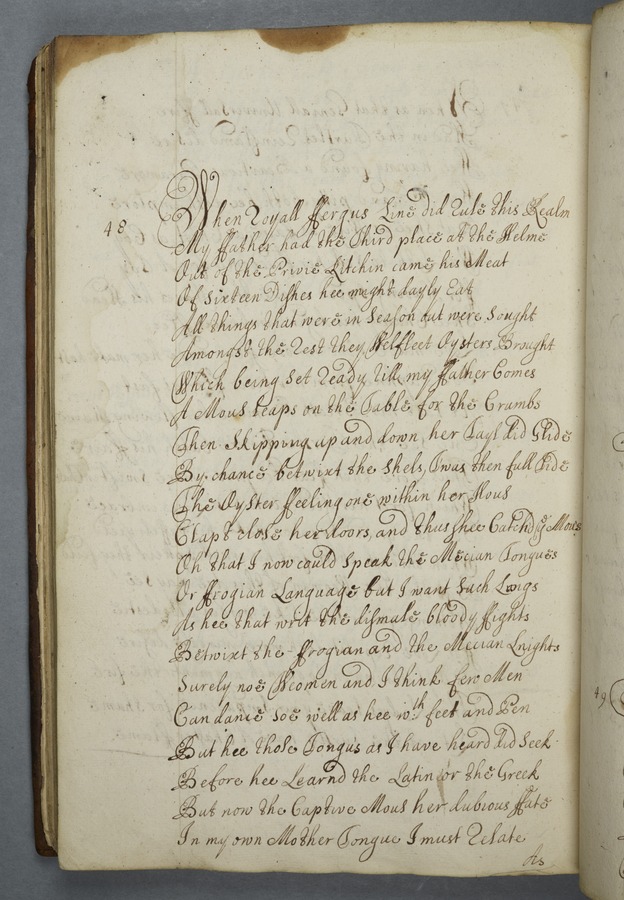 48
When Royall ffergus Line did Rule this Realm
My ffather had the Third place at the Helme
Out of the Privie Kitchin came his Meat
Of Sixteen Dishes hee might dayly Eat
All things that were in Season out were Sought
Amongst the Rest they Welfleet Oysters Brought
Which being Set Ready till my ffather Comes
A Mous Leaps on the Table for the Crumbs
Then Skipping up and down her Tayl did Slide
By chance betwixt the Shels, Twas then full Tide
The Oyster ffeeling one within her Hous
Clapt close her doors and thus shee Catch'd ye Mous
Oh that I now could Speak the Mecian Tongues
Or ffrogian Language but I want Such Lungs
As hee that writ the dismale bloody ffights
Betwixt the ffrogian and the Mecian Knights
Surely noe Weomen and I think few Men
Can dance soe well as hee wth feet and Pen
But hee those Tongus as I have heard did Seek
Before hee Learnd the Latin or the Greek
But now the Captive Mous her dubious ffate
In my own Mother Tongue I must Relate
As
49